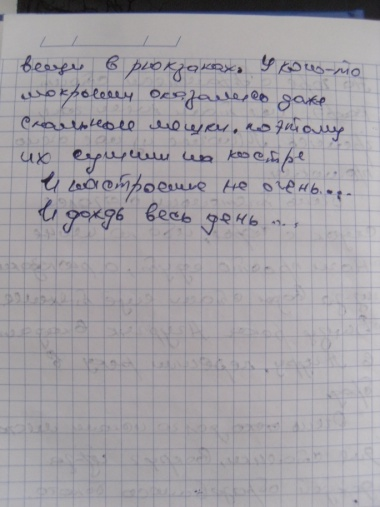 вещи в рюкзаках. У кого-то
мокрыми оказались даже
спальные мешки. поэтому
их сушили на костре
И настроение не очень...
И дождь весь день...